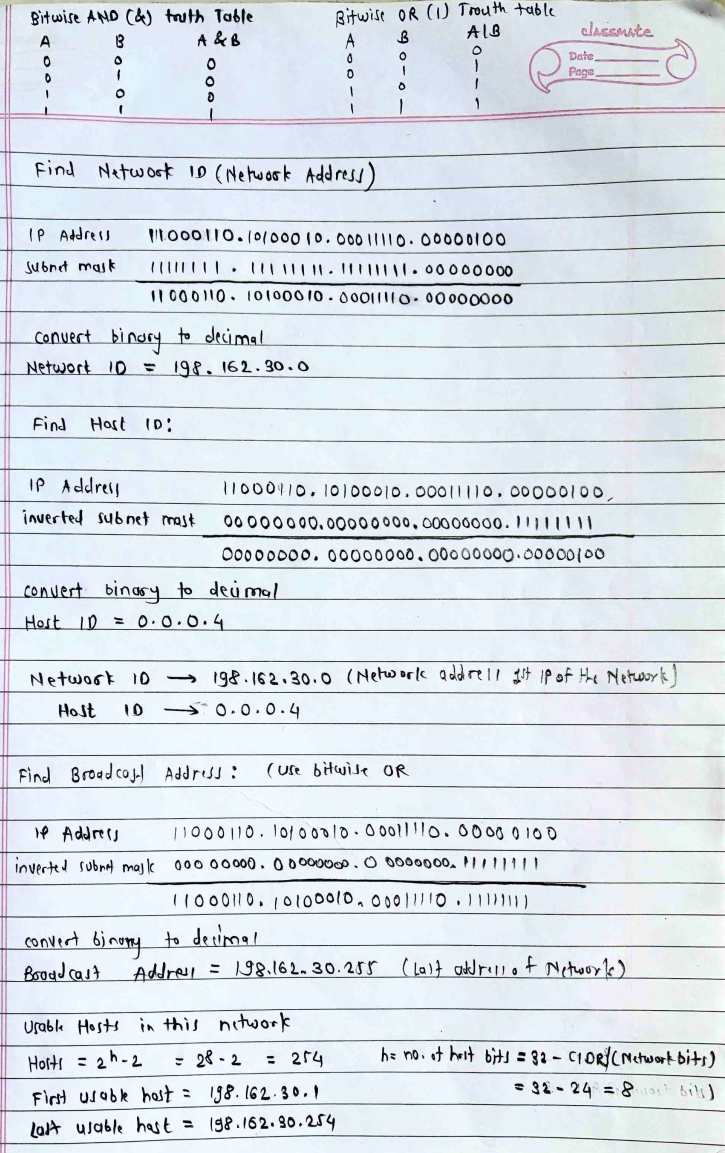 Bitwise AND (&) truth Table Bitwise OR (1) Trouth table
A B A & B A B A|B
0 0 0 0 0 0
0 1 0 0 1 1
1 0 0 1 0 1
1 1 1 1 1 1
classmate
Date
Page
Find Network ID (Network Address)
IP Address 111000110.10100010.00011110.00000100
subnet mask 11111111.11111111.11111111.00000000
11000110.10100010.00011110.00000000
convert binary to decimal
Network ID = 198.162.30.0
Find Host ID:
IP Address 11000110.10100010.00011110.00000100,
inverted subnet mask 00000000.00000000.00000000.11111111
00000000.00000000.00000000.00000100
convert binary to decimal
Host ID = 0.0.0.4
Network ID → 198.162.30.0 (Network address 1st IP of the Network)
Host ID → 0.0.0.4
Find Broadcast Address: (use bitwise OR
IP Address 11000110.10100010.00011110.00000100
inverted subnet mask 00000000.00000000.00000000.11111111
11000110.10100010.00011110.11111111
convert binary to decimal
Broadcast Address = 198.162.30.255 (Last address of Network)
Usable Hosts in this network
Hosts = 2^h-2 = 28-2 = 254 h= no. of host bits = 32 - CIDR/(Network bits)
First usable host = 198.162.30.1 = 32 - 24 = 8 bits)
Last usable host = 198.162.30.254